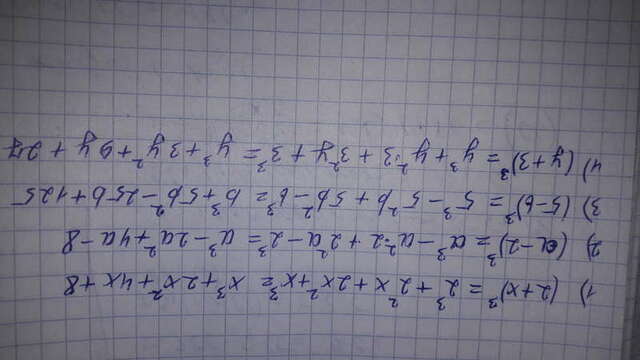 1) (2+x)³ = 2³ + 2²x + 2x² + x³ = x³ + 2x² + 4x + 8
2) (a-2)³ = a³ - a²·2 + 2²a - 2³ = a³ - 2a² + 4a - 8
3) (5-b)³ = 5³ - 5²b + 5b² - b³ = b³ + 5b² - 25b + 125
4) (y+3)³ = y³ + y²·3 + 3²y + 3³ = y³ + 3y² + 9y + 27